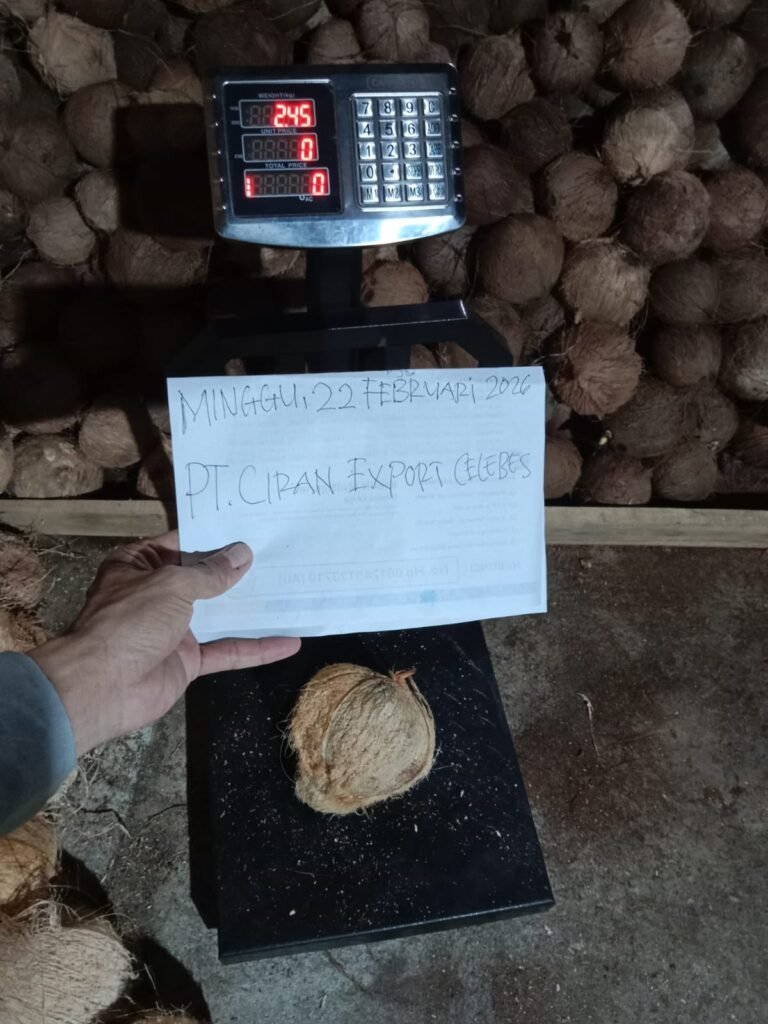 WEIGHT/kg
2.45
UNIT PRICE
0
TOTAL PRICE
0
AC
7 8 9 C
4 5 6
1 2 3
0
M1 M2 M3
MINGGU, 22 FEBRUARI 2026
PT. CIRAN EXPORT CELEBES